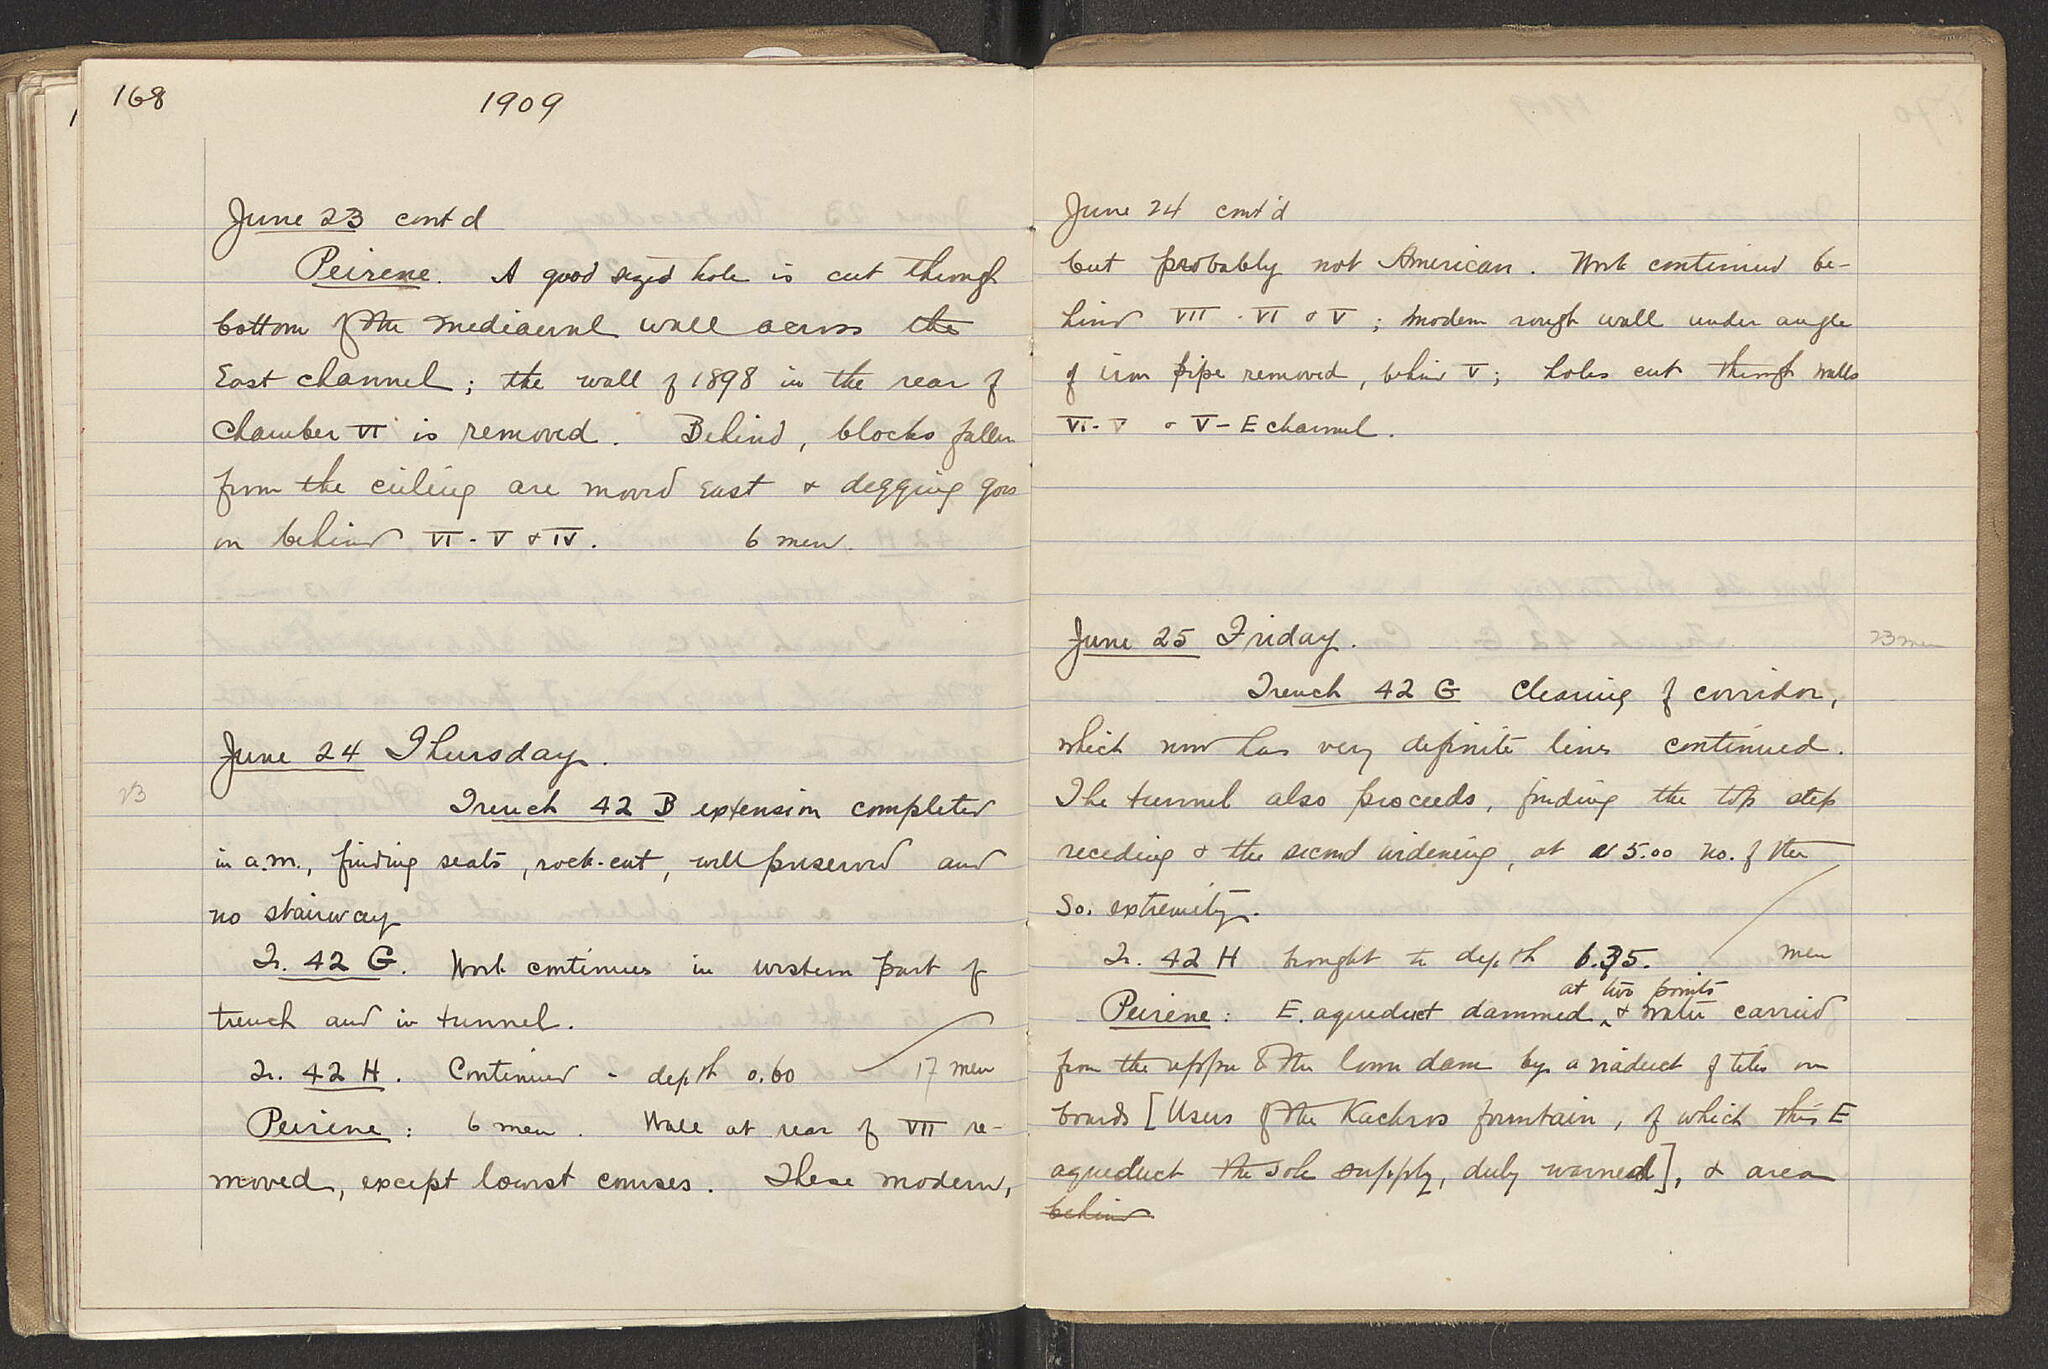 168
1909
June 23 cont'd
Peirene. A good sized hole is cut through
bottom of the mediaeval wall across the
East channel; the wall of 1898 in the rear of
chamber VI is removed. Behind, blocks fallen
from the ceiling are moved East & digging goes
on behind VI - V & IV. 6 men.
June 24 Thursday.
23
Trench 42 B extension completed
in a.m., finding seats, rock-cut, well preserved and
no stairway
Tr. 42 G. Work continues in western part of
trench and in tunnel.
Tr. 42 H. Continued - depth 0.60 17 men
Peirene: 6 men. Wall at rear of VII re-
moved, except lowest courses. These modern,
June 24 cont'd
but probably not American. Work continued be-
hind VII - VI & V; modern rough wall under angle
of iron pipe removed, behind V; holes cut through walls
VI - V & V - E channel.
June 25 Friday. 23 men
Trench 42 G Clearing of corridor,
which now has very definite lines continued.
The tunnel also proceeds, finding the top step
receding & the second widening, at 5.00 no. of the
So. extremity.
Tr. 42 H brought to depth 6.35. men
at two points
Peirene: E. aqueduct dammed ^ & water carried
from the upper to the lower dam by a viaduct of tiles on
boards [Users of the Kachros fountain, of which this E
aqueduct the sole supply, duly warned], & area
behind